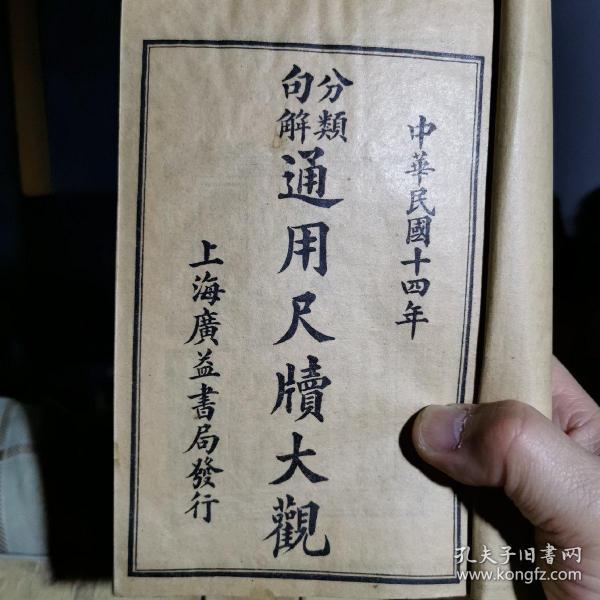 中華民國十四年
分類
句解
通用尺牘大觀
上海廣益書局發行
孔夫子旧书网
www.kongfz.com